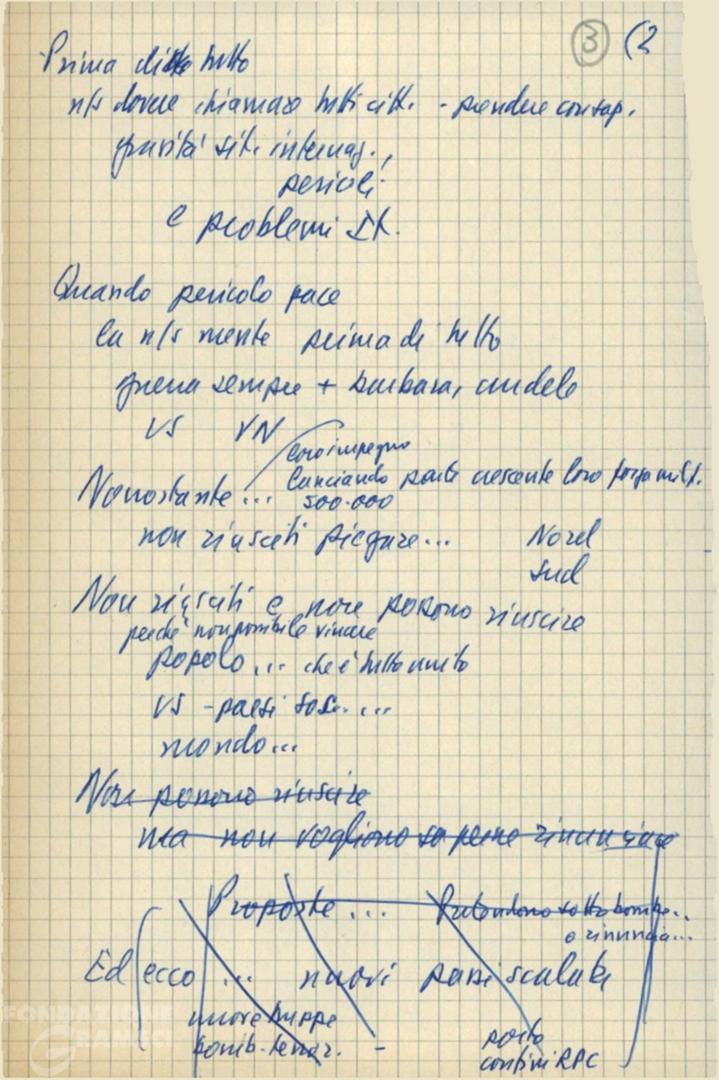 3 (2
Prima di tutto
n/s dovere chiamare tutti citt. - prendere consap.
gravità sit. internaz.,
pericoli
e problemi It.
Quando pericolo pace
la n/s mente prima di tutto
guerra sempre + barbara, crudele
VS VN
loro impegno
Nonostante ... lanciando parte crescente loro forza milit.
500.000
non riusciti piegare... Nord
Sud
Non riusciti e non possono riuscire
perché non possibile vincere
popolo ... che è tutto unito
VS - paesi soc. ...
mondo...
Non possono riuscire
ma non vogliono saperne rinunciare
Proposte ... sotto bombe..
o rinuncia...
Ed ecco ... nuovi passi scalata
nuove truppe
bomb. terror. - porto
confini RPC
FONDAZIONE
GRAMSCI